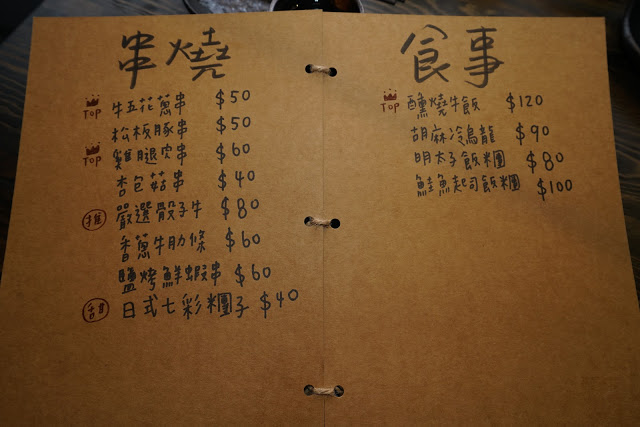 串燒
TOP 牛五花蔥串 $50
松板豚串 $50
TOP 雞腿肉串 $60
杏包菇串 $40
推 嚴選骰子牛 $80
香蔥牛肋條 $60
鹽烤鮮蝦串 $60
甜 日式七彩糰子 $40
食事
TOP 醺燒牛飯 $120
胡麻冷烏龍 $90
明太子飯糰 $80
鮭魚起司飯糰 $100